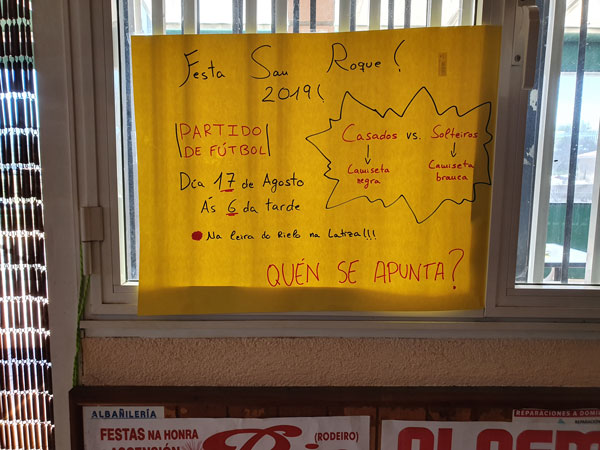 Festa San Roque!
2019!
PARTIDO
DE FÚTBOL
Casados vs. Solteiros
Camiseta
negra
Camiseta
branca
Día 17 de Agosto
Ás 6 da tarde
Na leira do Rielo na Latiza!!!
QUÉN SE APUNTA?
ALBAÑILERÍA
FESTAS NA HONRA
ASCENCIÓN
(RODEIRO)
REPARACIONES A DOMI